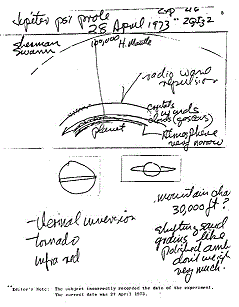 Jupiter psi probe Exp 46
28 April 1973** 2gIs2
Sherman
Swann
100,000 H. Mantle
radio wave
repulsion
crystals
winds
clouds (gaseous)
planet
Atmosphere
very narrow
mountain cha
30,000 ft?
- thermal inversion
tornado
infra red
shifting sand
grains like
polished amb
don't weigh
very much.
**Editor's Note: The subject incorrectly recorded the date of the experiment.
The correct date was 27 April 1973.